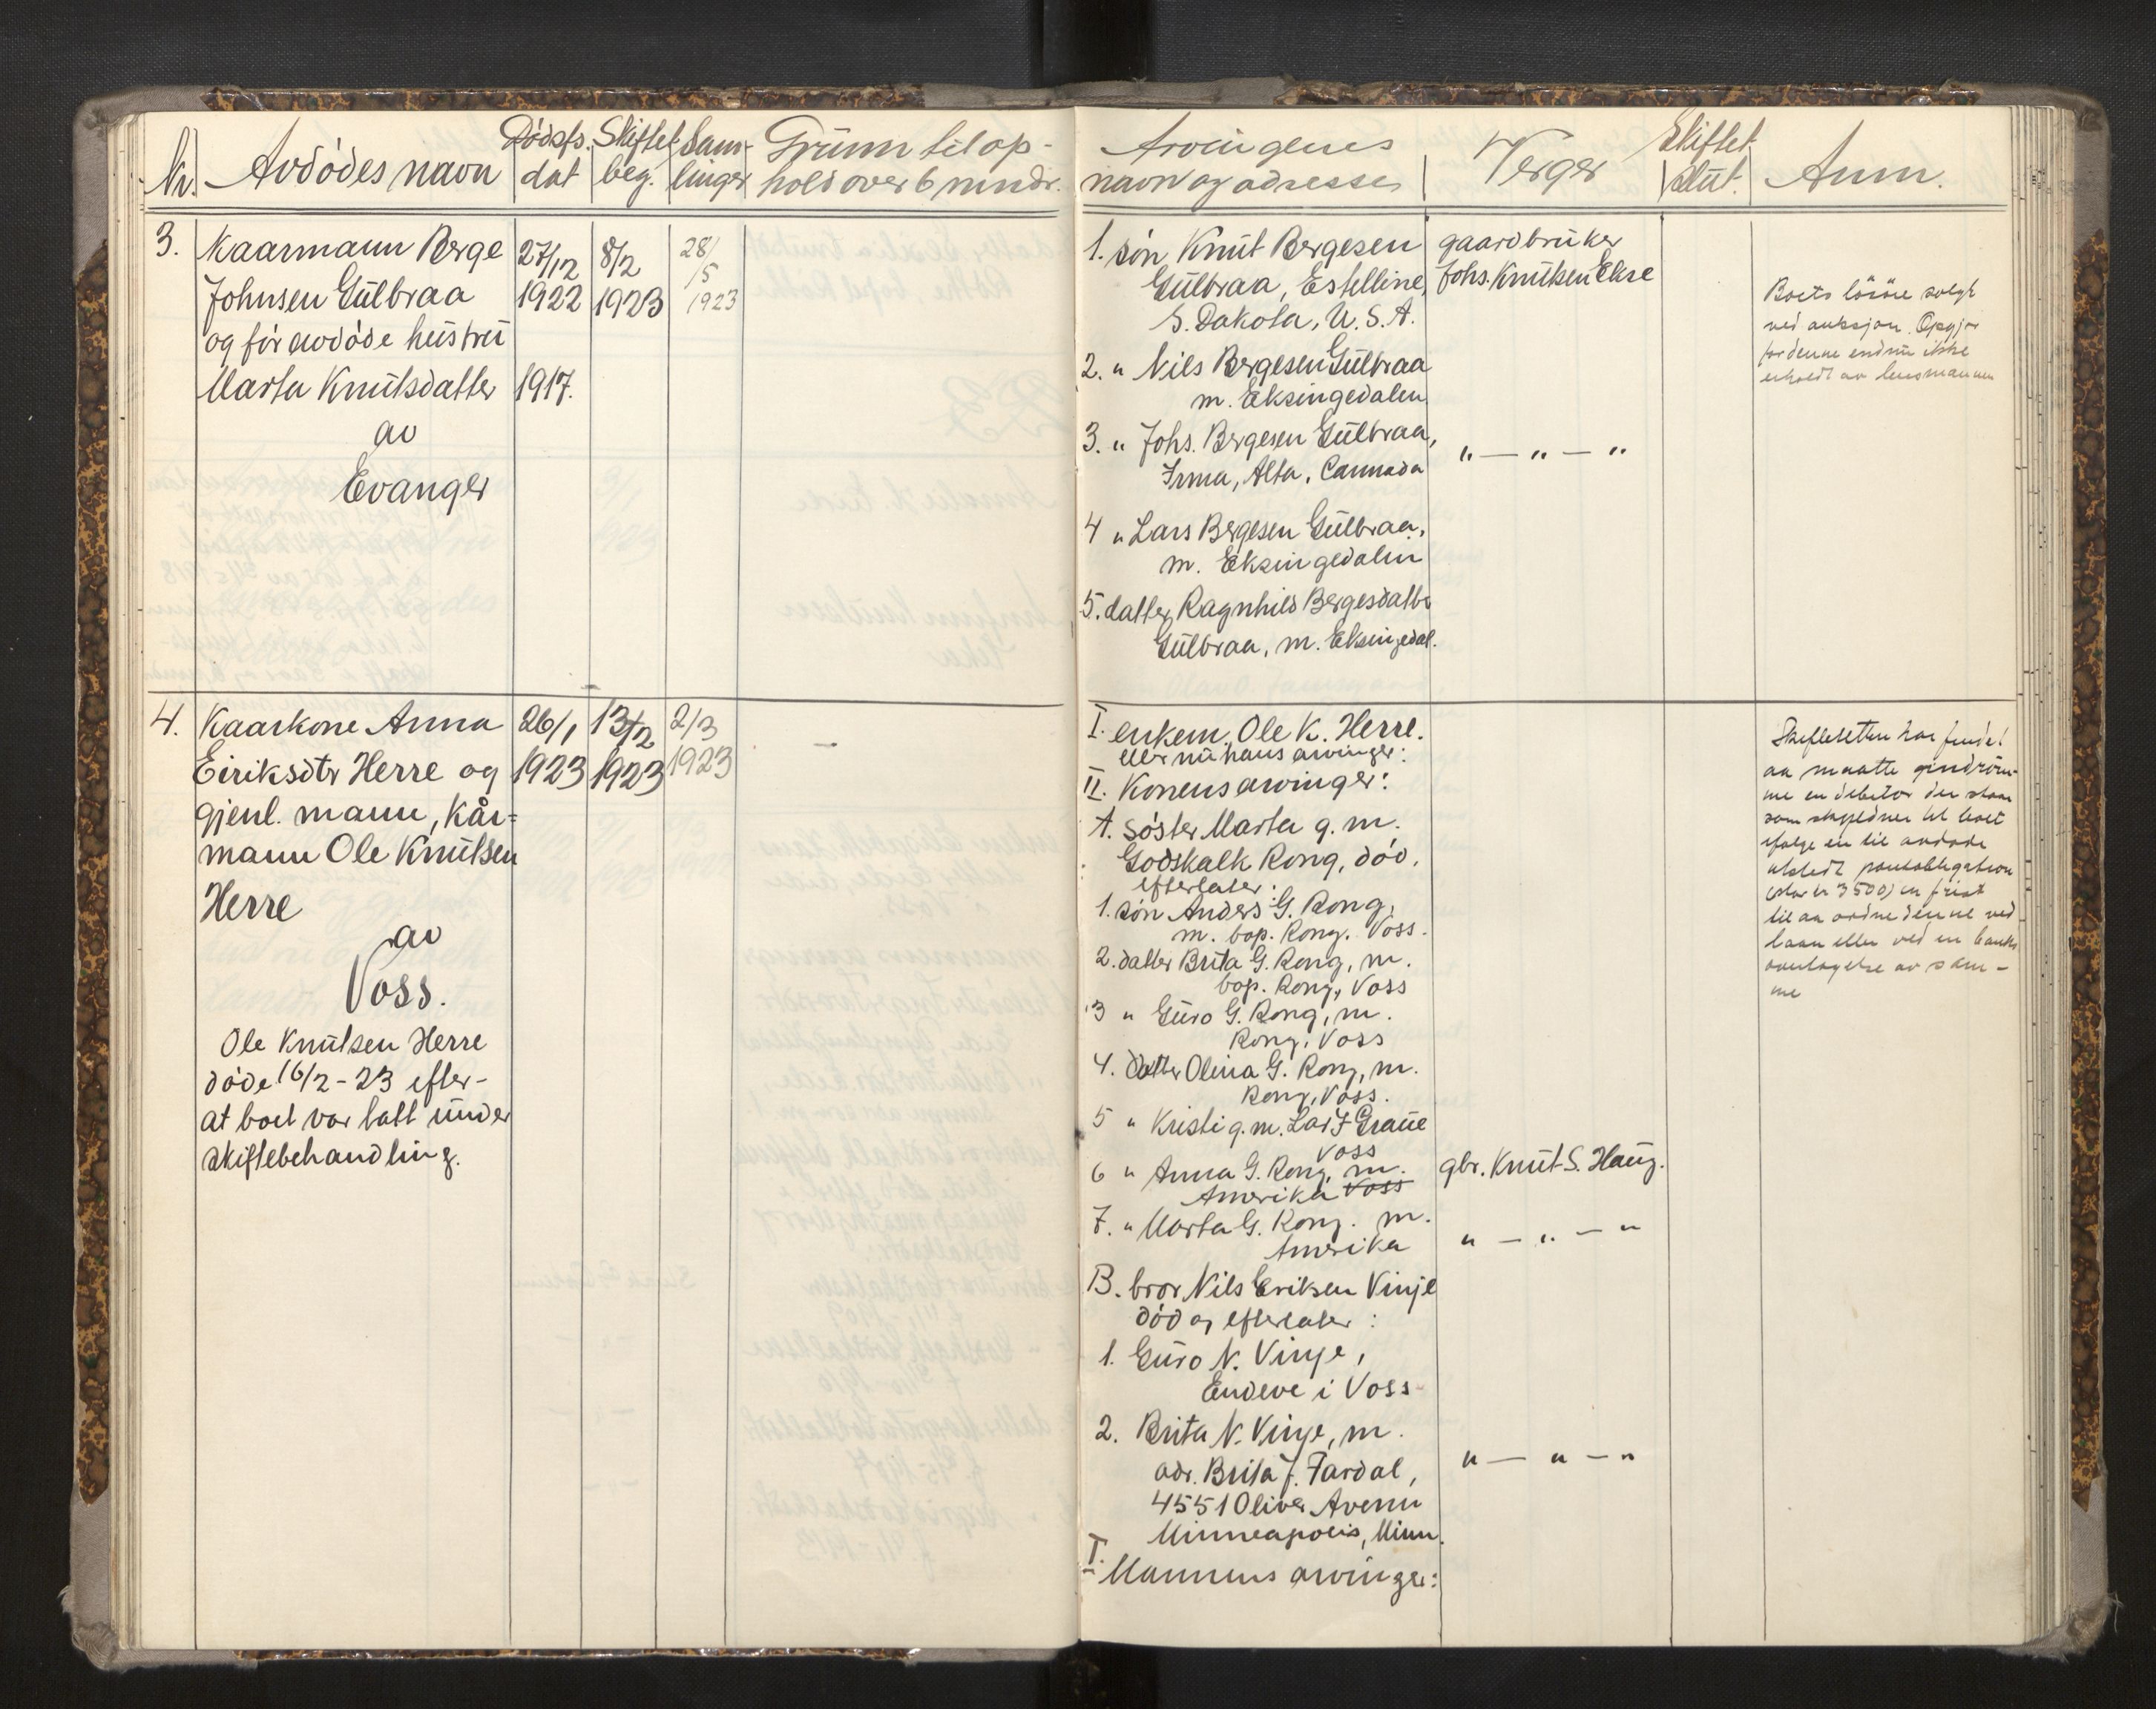 Nr. Avdødes navn Dødsfs. dat Skiftet beg. Sam-linger Grunn til op-hold over 6 mndr.
3. Kaarmann Berge 27/12 8/2 28/5
Johnsen Gulbraa 1922 1923 1923
og før avdøde hustru
Marta Knutsdatter 1917.
av
Evanger
4. Kaarkone Anna 26/1 13/2 2/3 —
Eiriksdtr Herre og 1923 1923 1923
gjenl. mann, Kår=
mann Ole Knutsen
Herre
av
Voss.
Ole Knutsen Herre
døde 16/2-23 efter-
at boet var tatt under
skiftebehandling.
Arvingenes navn og adresse Verger Skiftet slut. Anm.
1. søn Knut Bergesen gaardbruker
Gulbraa, Estelline, Johs. Knutsen Ekse
S. Dakota, U.S.A.
2. " Nils Bergesen Gulbraa
m. Eksingedalen
3. " Johs. Bergesen Gulbraa, " — " — "
Irma, Alta, Cannada
4 " Lars Bergesen Gulbraa,
m. Eksingedalen
5. datter Ragnhild Bergesdatter
Gulbraa, m. Eksingedal.
Boets løsøre solgt
ved auksjon. Opgjør
for denne endnu ikke
erholdt av lensmannen
I. enkem. Ole K. Herre.
eller nu hans arvinger:
II. Konens arvinger:
A. søster Marta g. m.
Godskalk Rong, død.
efterlater:
1. søn Anders G. Rong,
m. bop. Rong. Voss.
2. datter Brita G. Rong, m.
bop. Rong, Voss
3 " Guro G. Rong, m.
Rong, Voss
4. datter Olina G. Rong, m.
Rong, Voss.
5 " Kristi g. m. Graue
Voss
6 " Anna G. Rong, m. gbr. Knut S. Haug.
Amerika Voss
7. " Marta G. Rong. m. " — " — "
Amerika
B. bror Nils Eriksen Vinje
død og efterlater:
1. Guro N. Vinje,
Endeve i Voss
2. Brita N. Vinje, m.
adr. Brita J. Fardal, " — " — "
4551 Oliver Avenu
Minneapolis, Minn.
I. Mannens arvinger:
Skifteretten har fundet
aa maatte indrøm-
me en debitor der staar
som skyldner til boet
ifølge en til avdøde
utstedt pantobligation
(stor kr 3500) en frist
til aa ordne denne ved
laan eller ved en banks
overtagelse av sam-
me